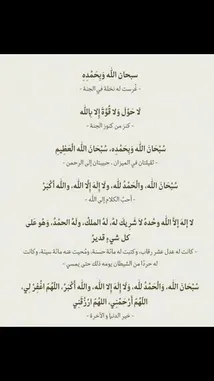 سبحان الله وبحمدِهِ
- غُرست له نخلة في الجنة -
لَا حَوْلَ وَلَا قُوَّةَ إِلا بِالله
- كنز من كنوز الجنة -
سُبْحَانَ اللَّهِ وَبِحَمْدِهِ، سُبْحَانَ اللَّهِ الْعَظِيمِ
- ثقيلتان في الميزان، حبيبتان إلى الرحمن -
سُبْحَانَ اللَّهِ، وَالْحَمْدُ لِلَّهِ، وَلا إِلَهَ إِلَّا اللَّهُ، وَاللَّهُ أَكْبَرُ
- أحبّ الكلام إلى الله -
لا إلهَ إلاَّ اللَّه وحْدهُ لاَ شَرِيكَ لهُ، لَهُ المُلكُ، ولهُ الحمْدُ، وهُو عَلَى
كل شيءٍ قديرٌ
- كانت له عدل عشر رقاب، وكتبت له مائة حسنة، ومُحيت عنه مائة سيئة، وكانت
له حرزًا من الشيطان يومه ذلك حتى يمسي -
سُبْحَانَ اللهِ، وَالْحَمْدُ لِلَّهِ، وَلَا إِلَهَ إلا الله، وَاللهُ أَكْبَرُ، اللَّهُمَّ اغْفِرْ لِي،
اللَّهُمَّ أَرْحَمْنِي، اللهُمَّ ارْزُقْنِي
- خير الدنيا والآخرة -